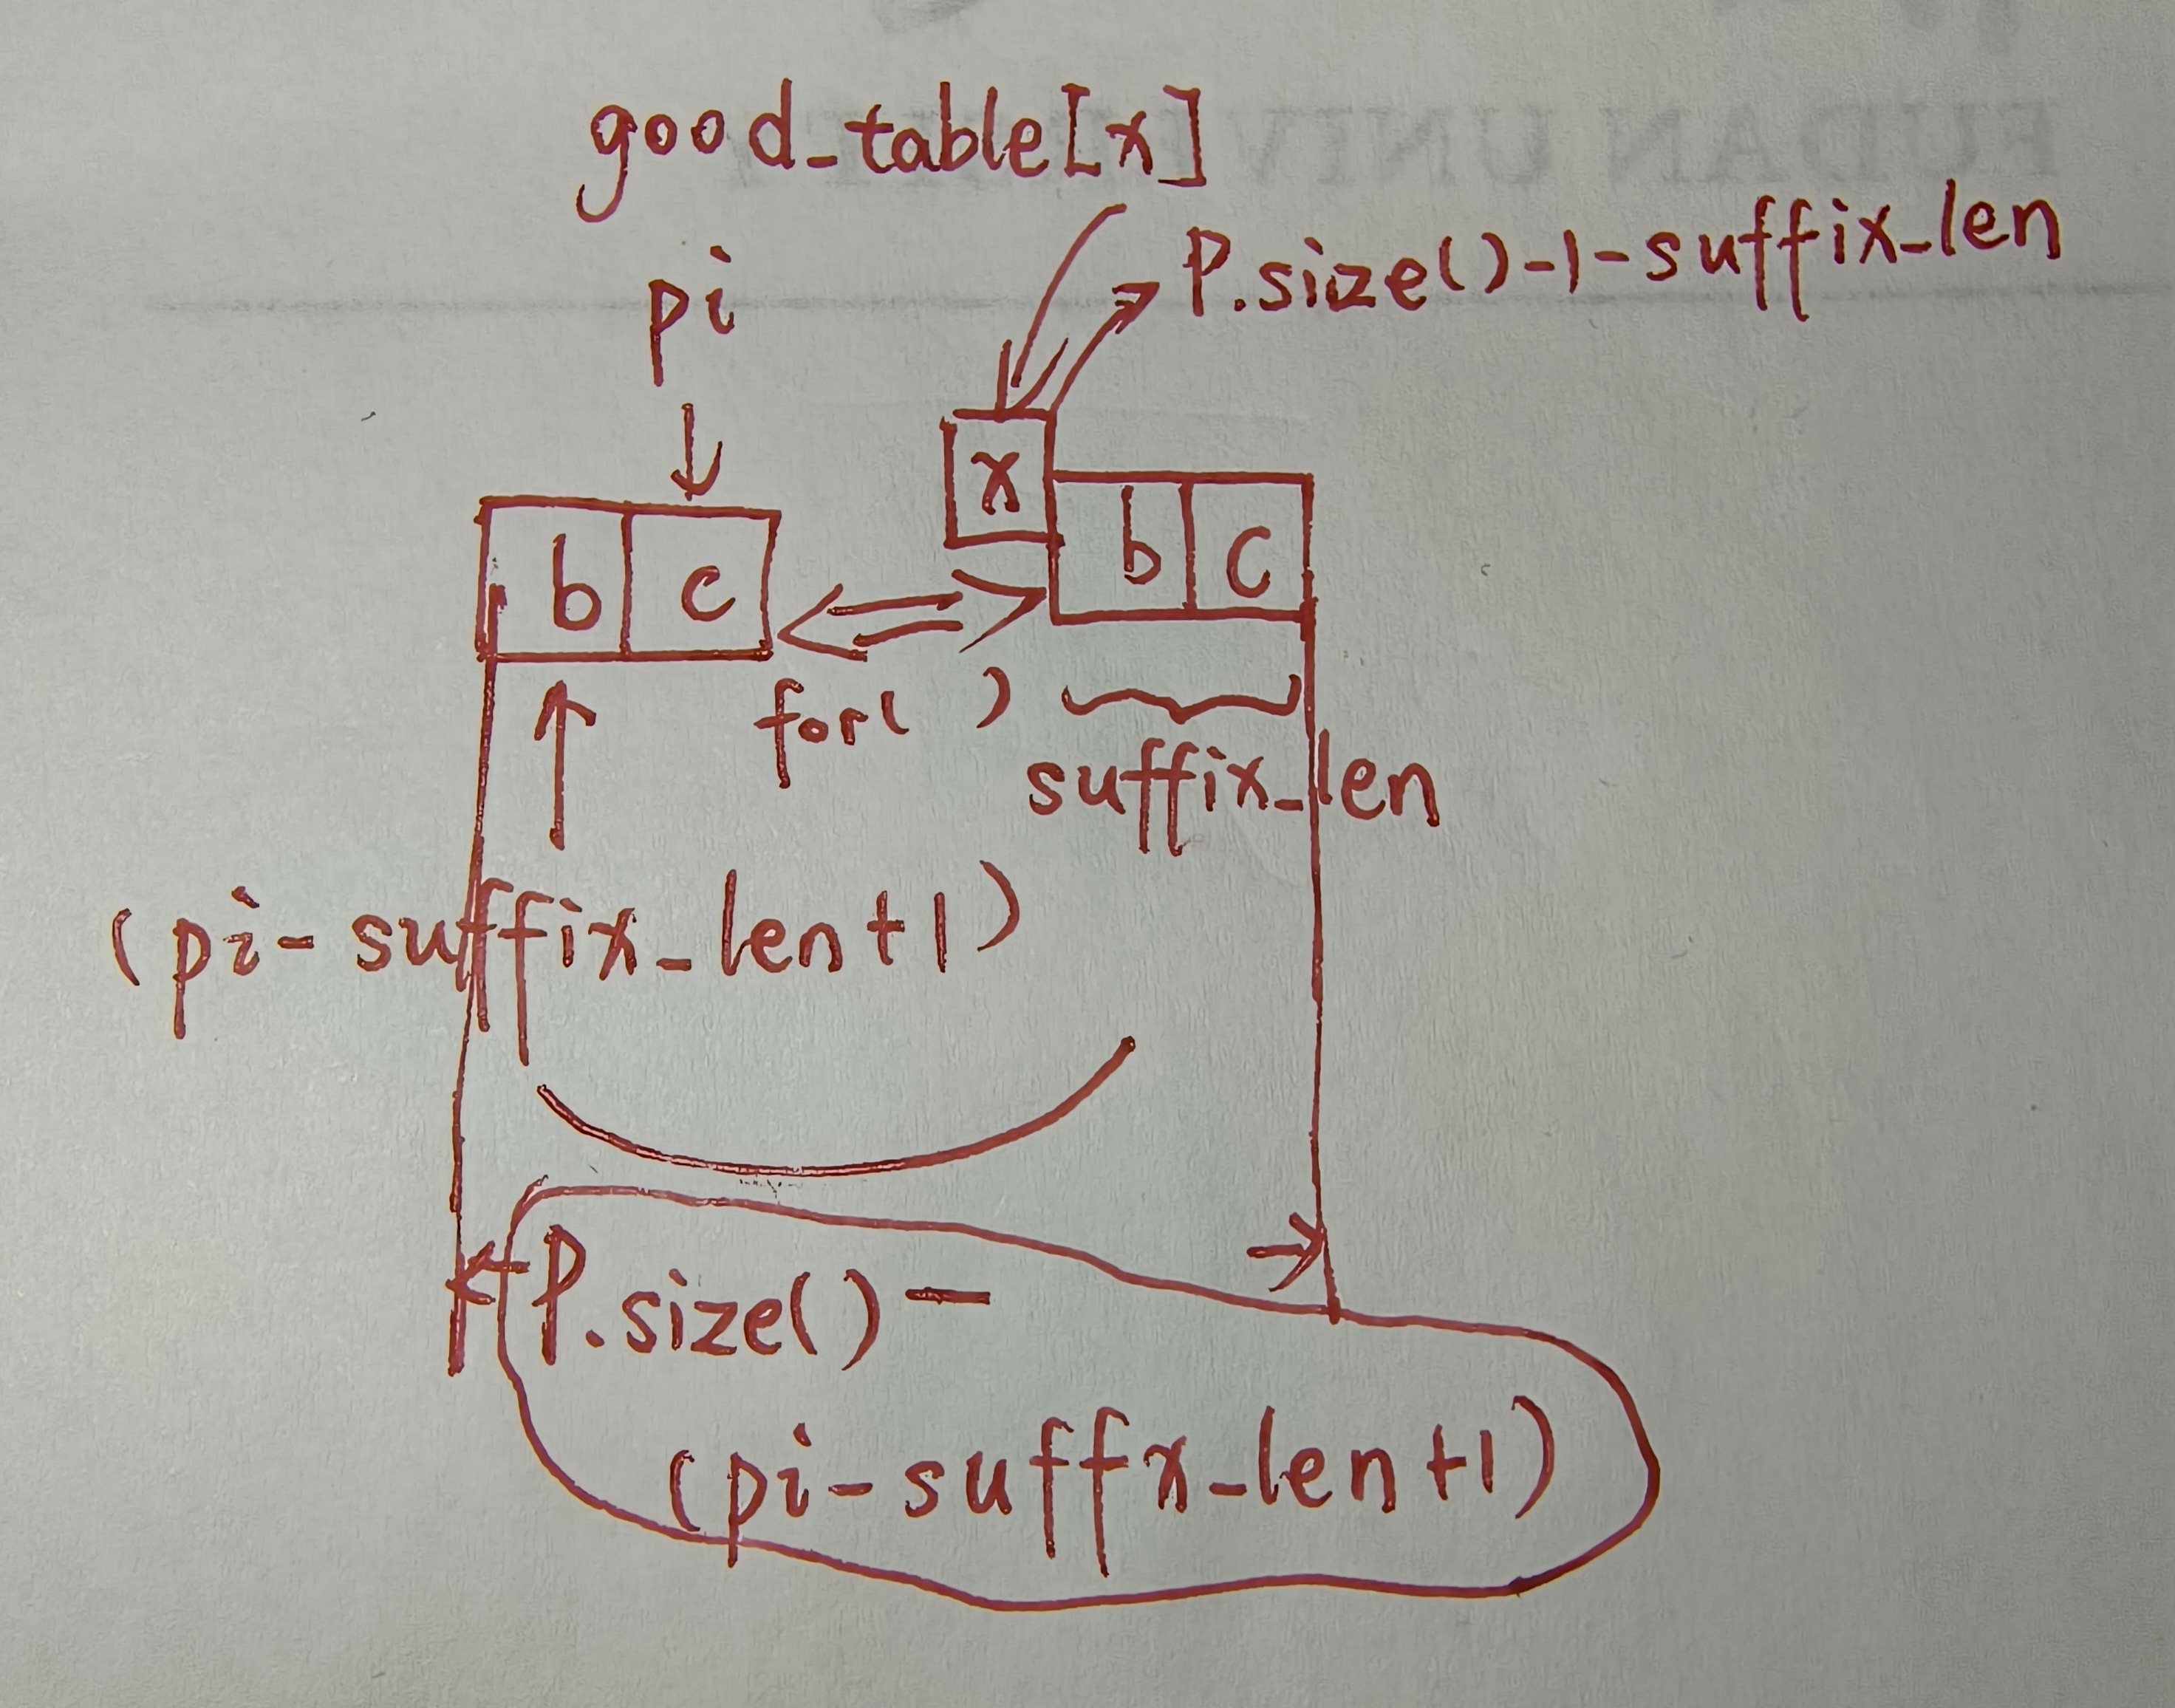 FUDAN UNIVERSITY
good_table[x]
P.size()-1-suffix_len
pi
x
b c
b c
for( )
suffix_len
(pi-suffix_len+1)
P.size() -
(pi-suffx_len+1)